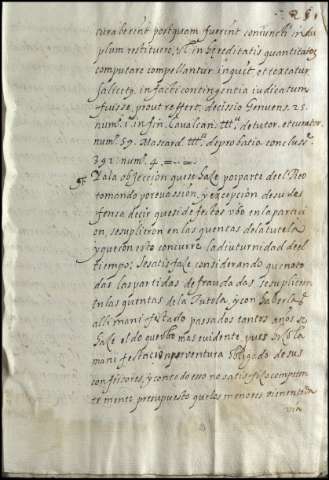 cura berint postquam fuerint conuincti indu
plum restituere, Vt in hereditatis quantitates
computare compellantur inquit, et censetur
Salicety. in facti contingentia iudicatum
fuisse, prout refert. decissio Genuens. 25.
num. 1. in fin. Caualcan. ttt.º de tutor. et curator.
num. 59. Mascard. ttt.º de probatio. conclus.
392. num. 4.
Y a la objeccion que se haze por parte del Reo
tomando por euassion, y excepcion de su de
fensa decir que si defectos vbo en la partici
on, se suplieron en las quentas de la tutela
y que con esto concurre la diuturnidad del
tiempo; Se satisfaze considerando que no to
das las partidas defraudadas se suplieron
en las quentas de la Tutela, y con haberlas
alli manifestado passados tantos años se
haze el dolo mas euidente, pues hizo la
manifestacion por ventura obligado de sus
confesores, y con todo esso no satisfizo competen
temente presupuesto que los menores
via